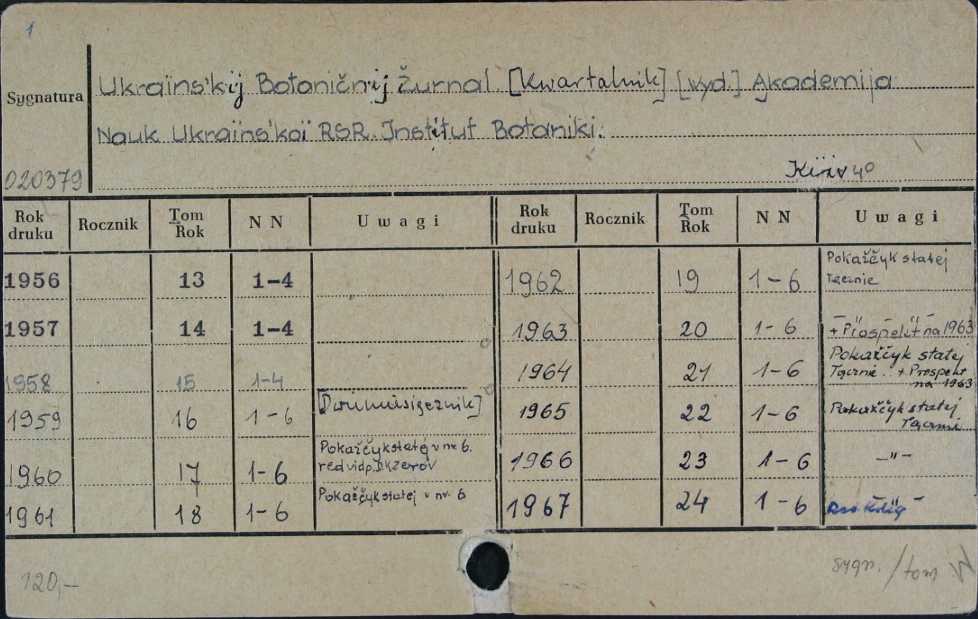 1
Sygnatura
Ukraïns'kij Botaničnij Žurnal [Kwartalnik] [wyd.] Akademija
Nauk Ukraïns'koï RSR. Institut Botaniki.
020379
Kiïv 4º
Rok druku Rocznik Tom Rok N N Uwagi Rok druku Rocznik Tom Rok N N Uwagi
1956 13 1-4 1962 19 1-6 Pokažčyk statej Łącznie
1957 14 1-4 1963 20 1-6 + Prospekt na 1963
1958 15 1-4 1964 21 1-6 Pokažčyk statej Łącznie + Prospekt na 1963
1959 16 1-6 [Dwumiesięcznik] 1965 22 1-6 Pokažčyk statej Łącznie
1960 17 1-6 Pokažčyk statej v nr. 6. red vidp. D.K. Zerov 1966 23 1-6 -"-
1961 18 1-6 Pokažčyk statej v nr. 6 1967 24 1-6
120,-
sygn. / tom